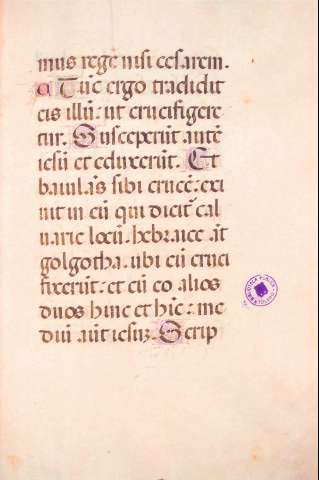 mus rege nisi cesarem.
Tūc ergo tradidit
eis illū: ut crucifigere
tur. Susceperūt autē
iesū et eduxerūt. Et
baiulās sibi crucē: exi
uit in eū qui dicit᷑ cal
uarie locū: hebraice āt
golgotha: ubi eū cruci
fixerūt: et cū eo alios
duos hinc et hīc: me
diū aūt iesuꝫ. Scrip